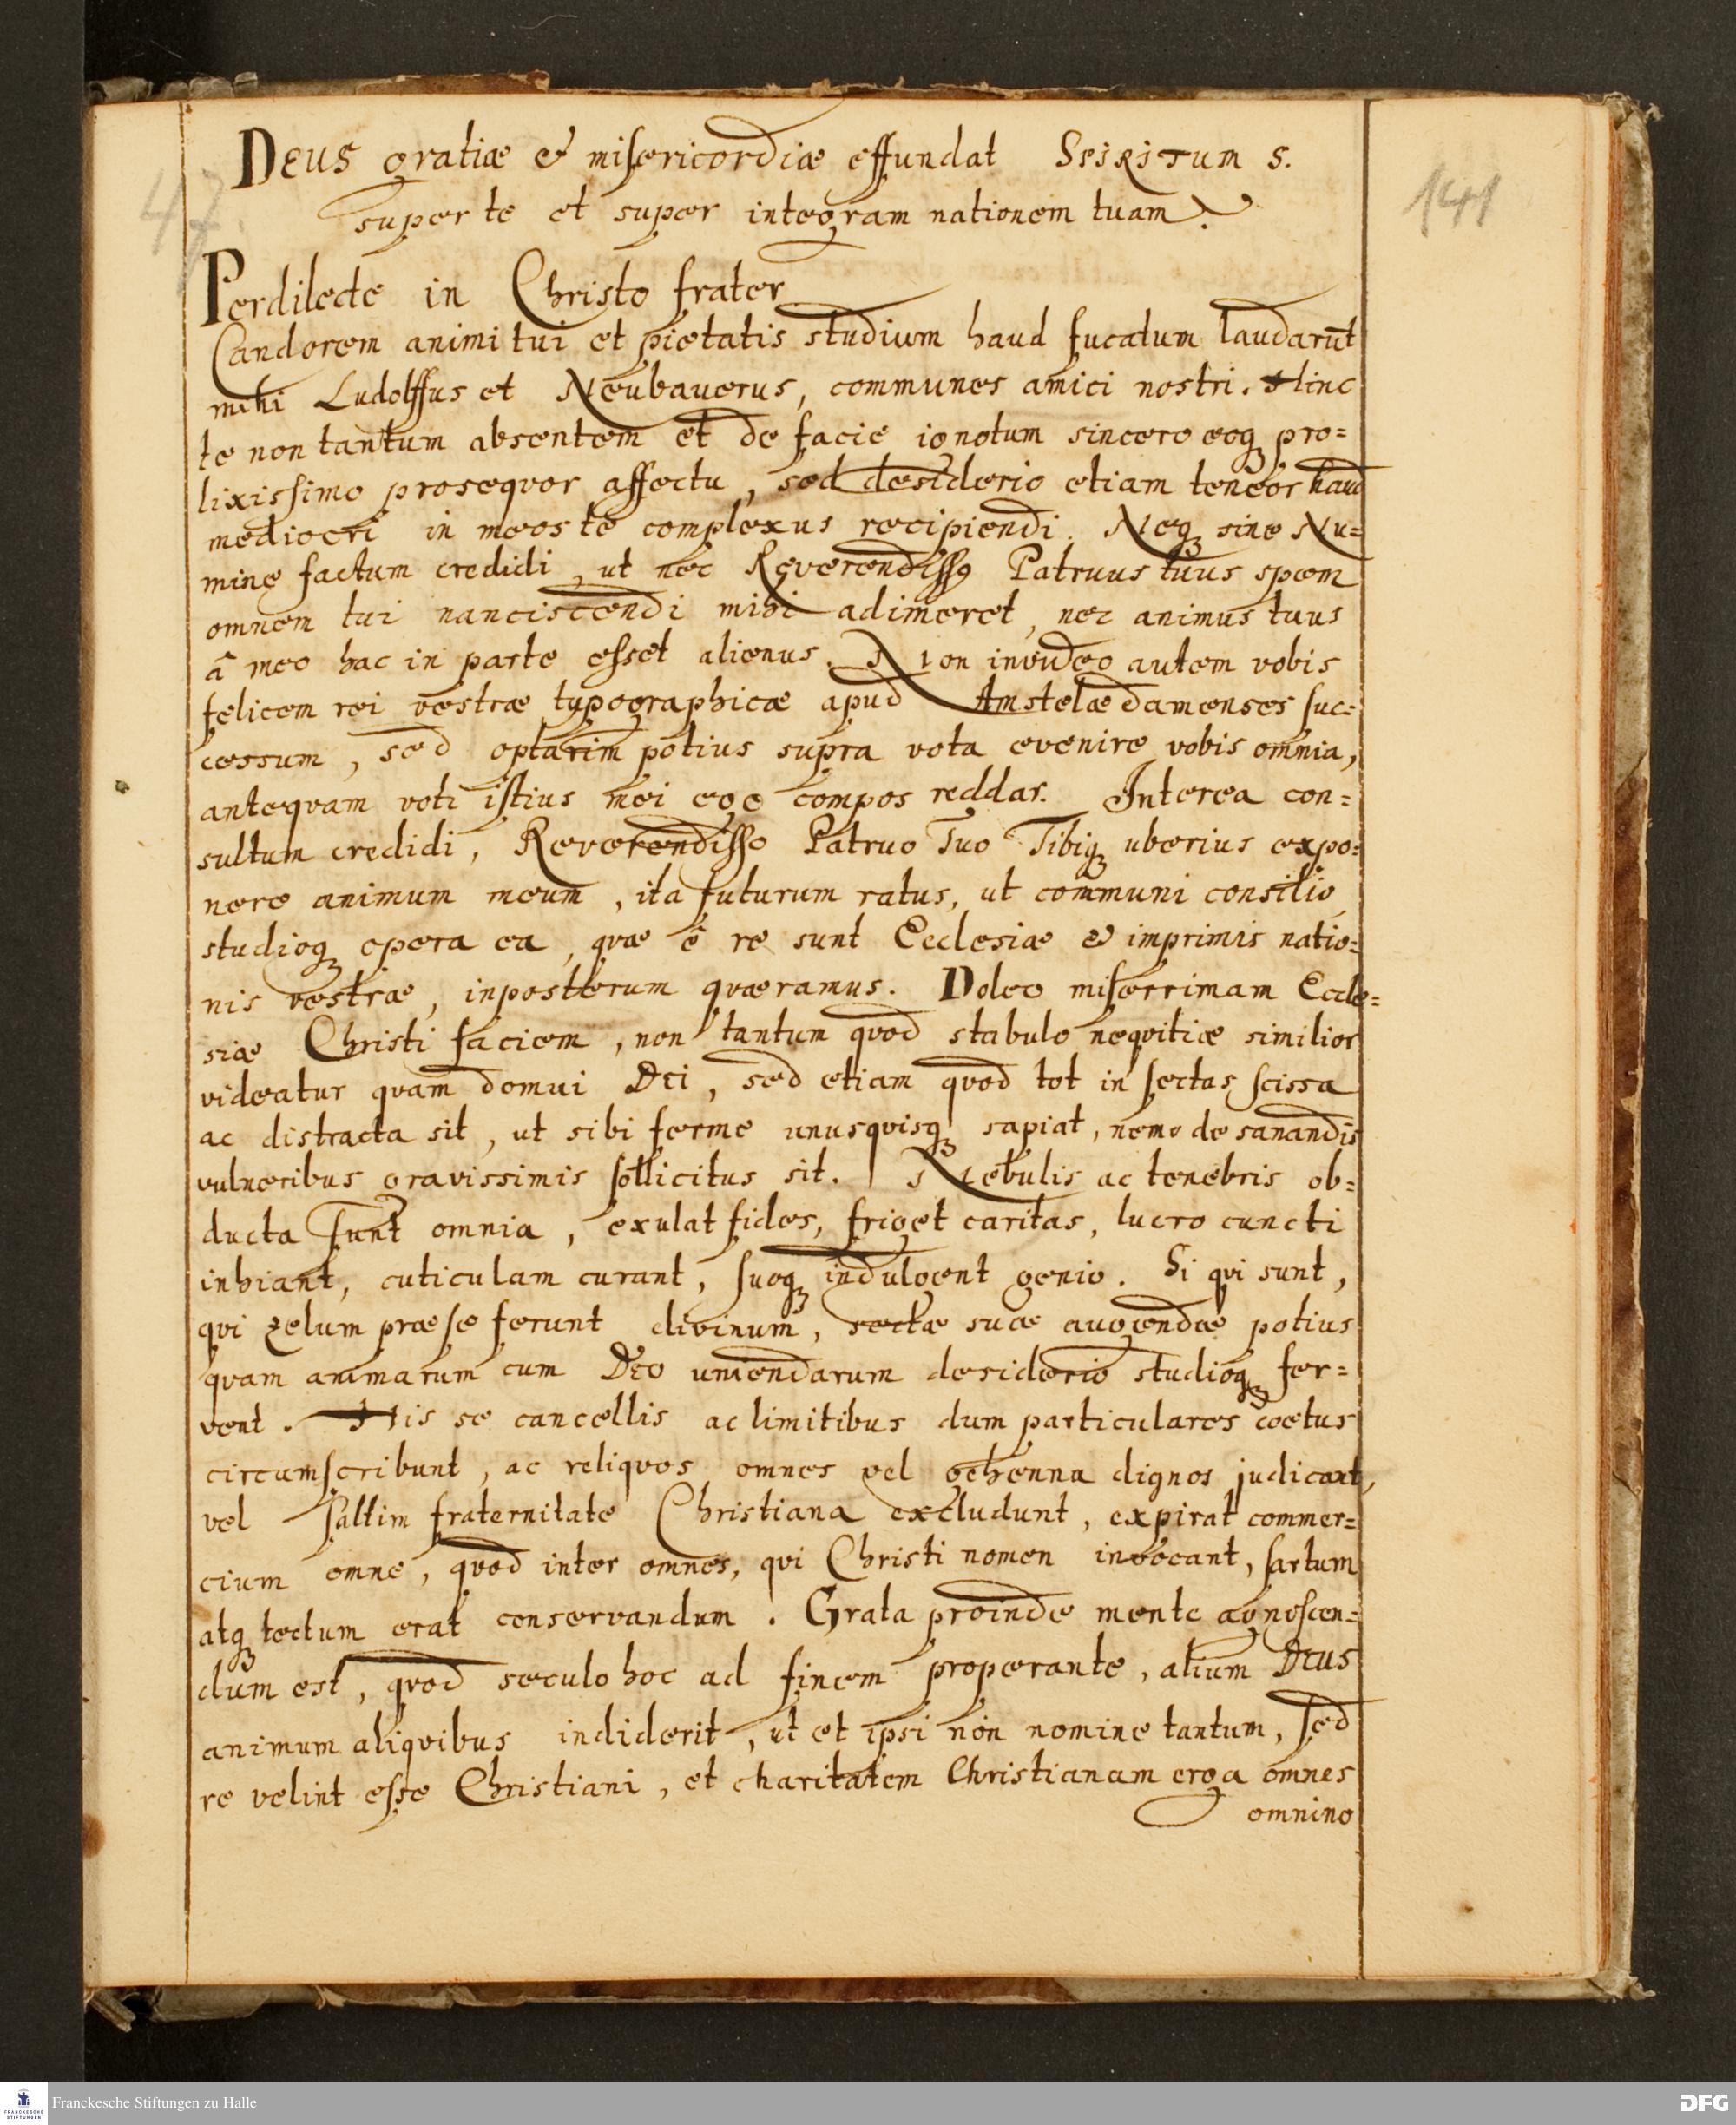 DEUS gratiæ & misericordiæ effundat SPIRITUM S.
super te et super integram nationem tuam.
47.
141
Perdilecte in Christo frater
Candorem animi tui et pietatis studium haud fucatum laudarūt
mihi Ludolffus et Neubauerus, communes amici nostri. Hinc
te non tantum absentem et de facie ignotum sincero eoq́ pro=
lixissimo prosequor affectu, sed desiderio etiam teneor haud
mediocri in meos te complexus recipiendi. Neq́ sine Nu=
mine factum credidi, ut nec Reverendiss9 Patruus tuus spem
omnem tui nanciscendi mihi adimeret, nec animus tuus
â meo hac in parte esset alienus. Non invideo autem vobis
felicem rei vestræ typographicæ apud Amstelædamenses suc=
cessum, sed optarim potius supra vota evenire vobis omnia,
antequam voti istius mei ego compos reddar. Interea con=
sultum credidi, Reverendisso Patruo Tuo Tibiq́ uberius expo=
nere animum meum, ita futurum ratus, ut communi consilio
studioq́ opera ea, quæ ê re sunt Ecclesiæ & imprimis natio=
nis vestræ, inposterum quæramus. Doleo miserrimam Eccle=
siæ Christi faciem, non tantum quod stabulo nequitiæ similior
videatur quam domui Dei, sed etiam quod tot in sectas scissa
ac distracta sit, ut sibi ferme unusquisq́ sapiat, nemo de sanandis
vulneribus gravissimis sollicitus sit. Nebulis ac tenebris ob=
ducta sunt omnia, exulat fides, friget caritas, lucro cuncti
inhiant, cuticulam curant, suoq́ indulgent genio. Si qui sunt,
qui zelum præ se ferunt divinum, sectæ suæ augendæ potius
quam animarum cum Deo uniendarum desiderio studioq́ fer=
vent. His se cancellis ac limitibus dum particulares coetus
circumscribunt, ac reliquos omnes vel gehenna dignos judicant,
vel saltim fraternitate Christiana excludunt, expirat commer=
cium omne, quod inter omnes, qui Christi nomen invocant, sartum
atq́ tectum erat conservandum. Grata proinde mente agnoscen=
dum est, quod seculo hoc ad finem properante, alium DEUS
animum aliquibus indiderit, ut et ipsi non nomine tantum, sed
re velint esse Christiani, et charitatem Christianam erga omnes
omnino
FRANCKESCHE STIFTUNGEN
Franckesche Stiftungen zu Halle
DFG